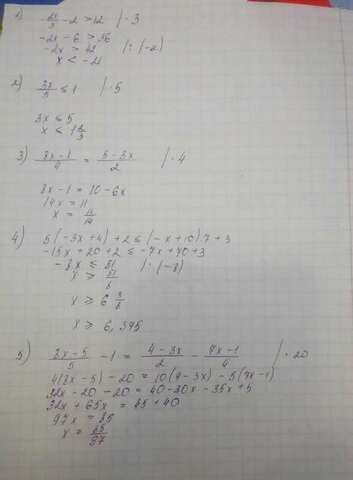 1) -2x/3 - 2 > 12 | · 3
-2x - 6 > 36
-2x > 42 | : (-2)
x < -21
2) 3x/5 ≤ 1 | · 5
3x ≤ 5
x ≤ 1 2/3
3) 8x-1/4 = 5-3x/2 | · 4
8x - 1 = 10 - 6x
14x = 11
x = 11/14
4) 5(-3x+4) + 2 ≤ (-x+10) · 7 + 3
-15x + 20 + 2 ≤ -7x + 70 + 3
-8x ≤ 51 | · (-8)
x ≥ 51/8
x ≥ 6 3/8
x ≥ 6,375
5) 8x-5/5 - 1 = 4-3x/2 - 7x-1/4 | · 20
4(8x-5) - 20 = 10(4-3x) - 5(7x-1)
32x - 20 - 20 = 40 - 30x - 35x + 5
32x + 65x = 45 + 40
97x = 85
x = 85/97